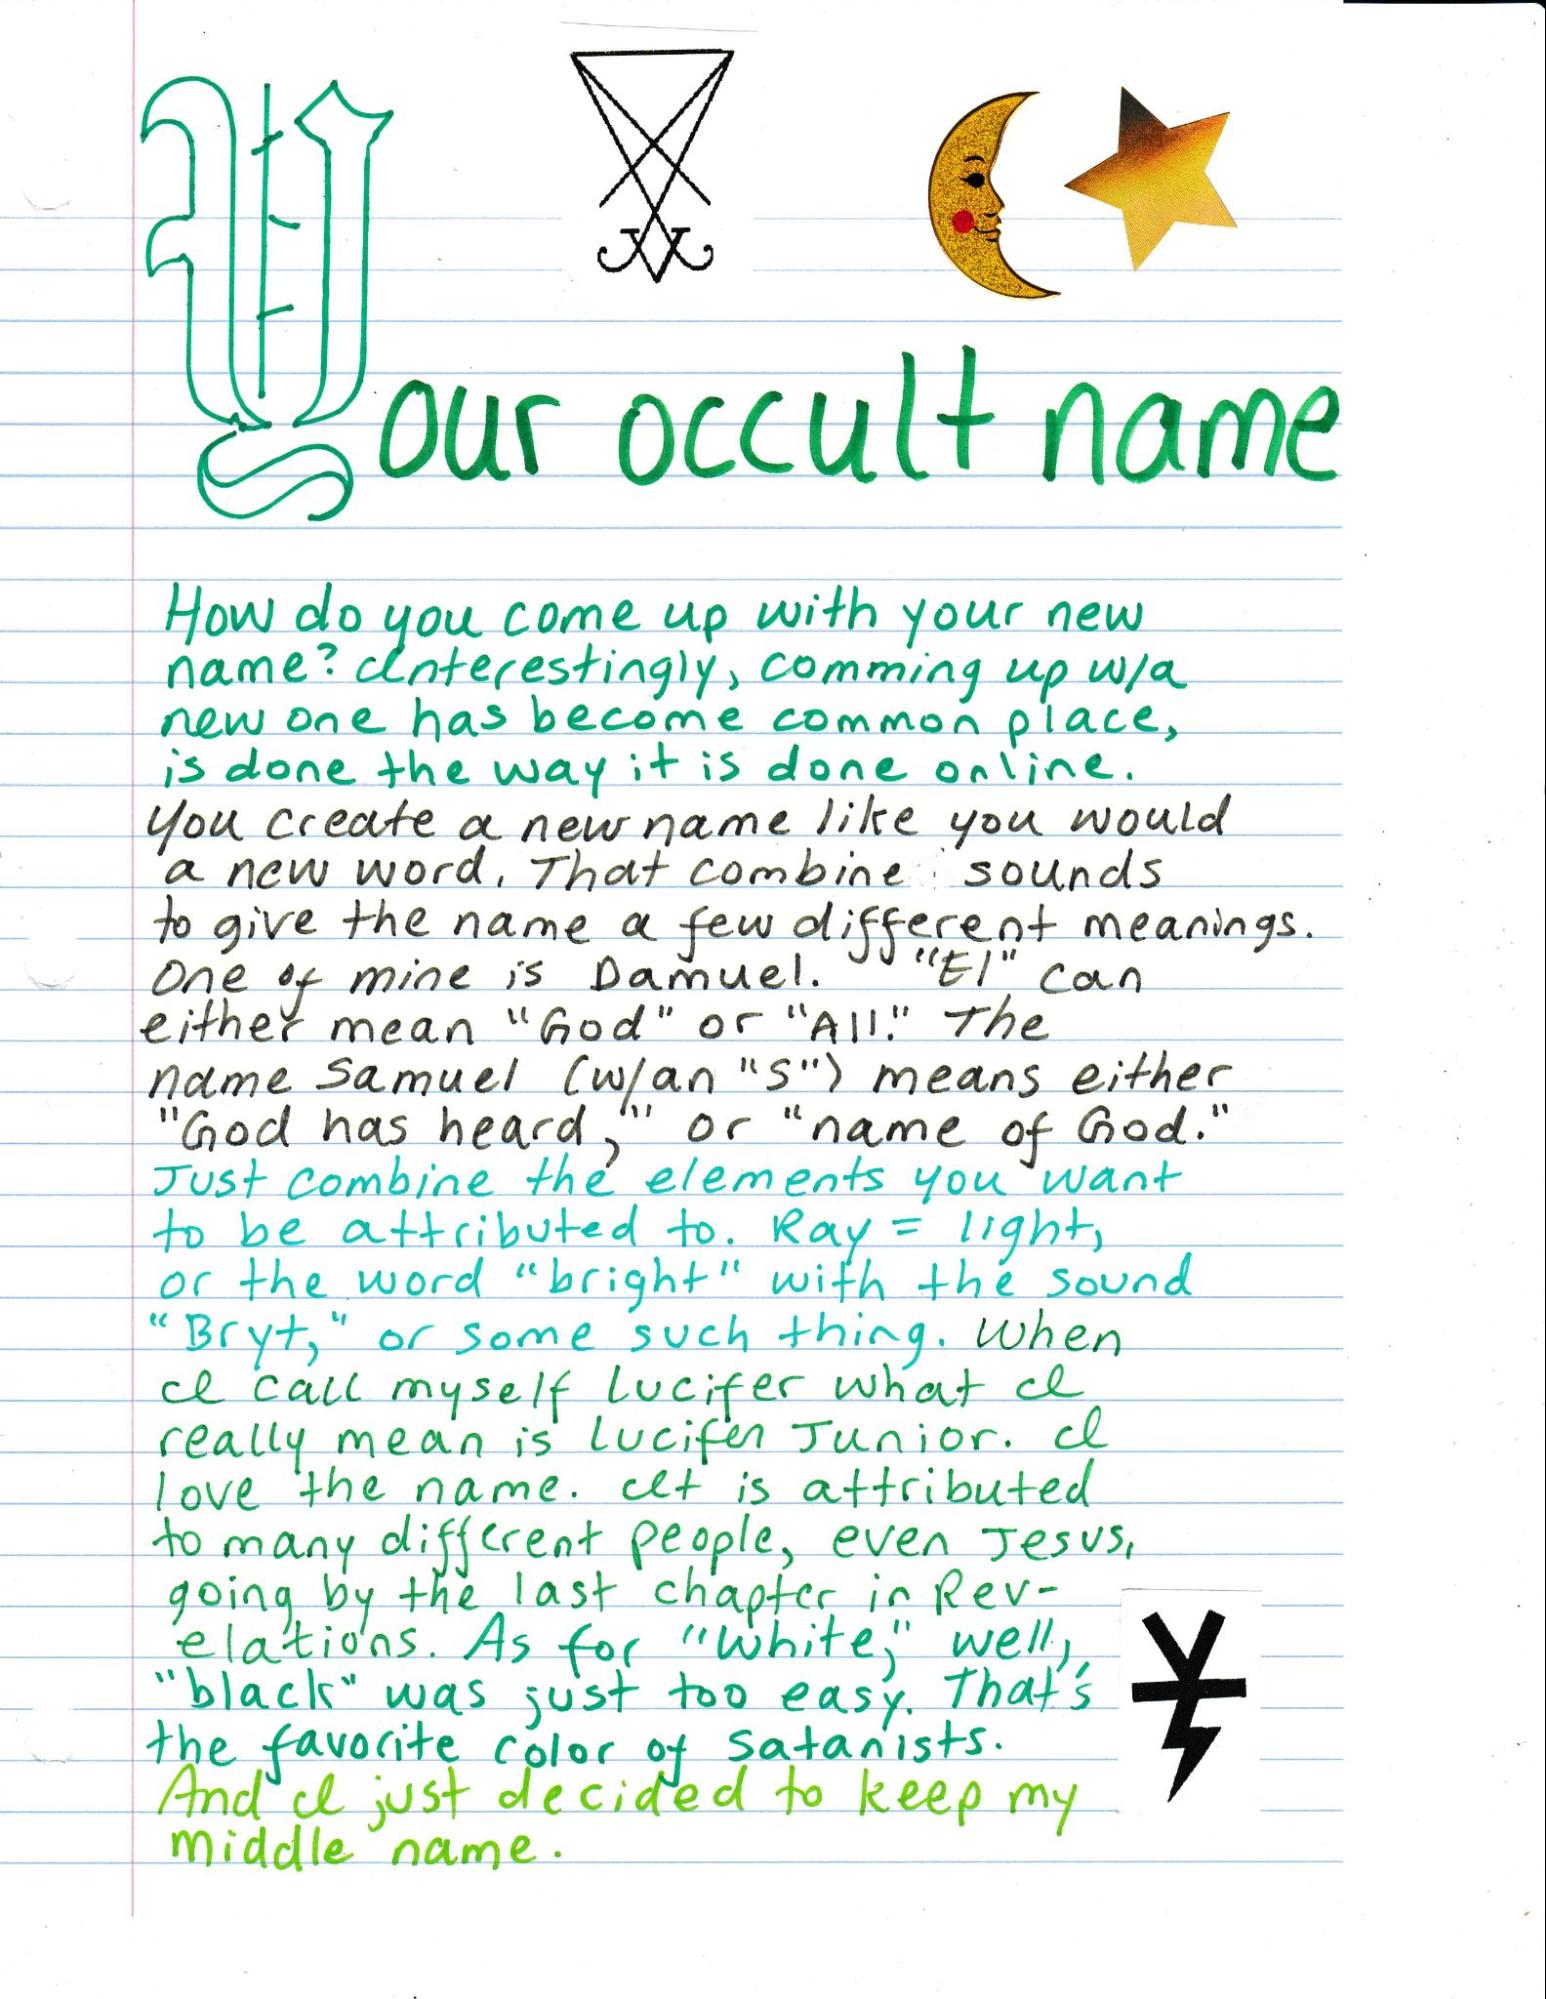 Your occult name
How do you come up with your new
name? Interestingly, comming up w/a
new one has become common place,
is done the way it is done online.
You create a new name like you would
a new word. That combine sounds
to give the name a few different meanings.
One of mine is Damuel. "El" can
either mean "God" or "All." The
name Samuel (w/an "S") means either
"God has heard," or "name of God."
Just combine the elements you want
to be attributed to. Ray = light,
or the word "bright" with the sound
"Bryt," or some such thing. When
I call myself Lucifer what I
really mean is Lucifer Junior. I
love the name. It is attributed
to many different people, even Jesus,
going by the last chapter in Rev-
elations. As for "White," well,
"black" was just too easy. That's
the favorite color of Satanists.
And I just decided to keep my
middle name.